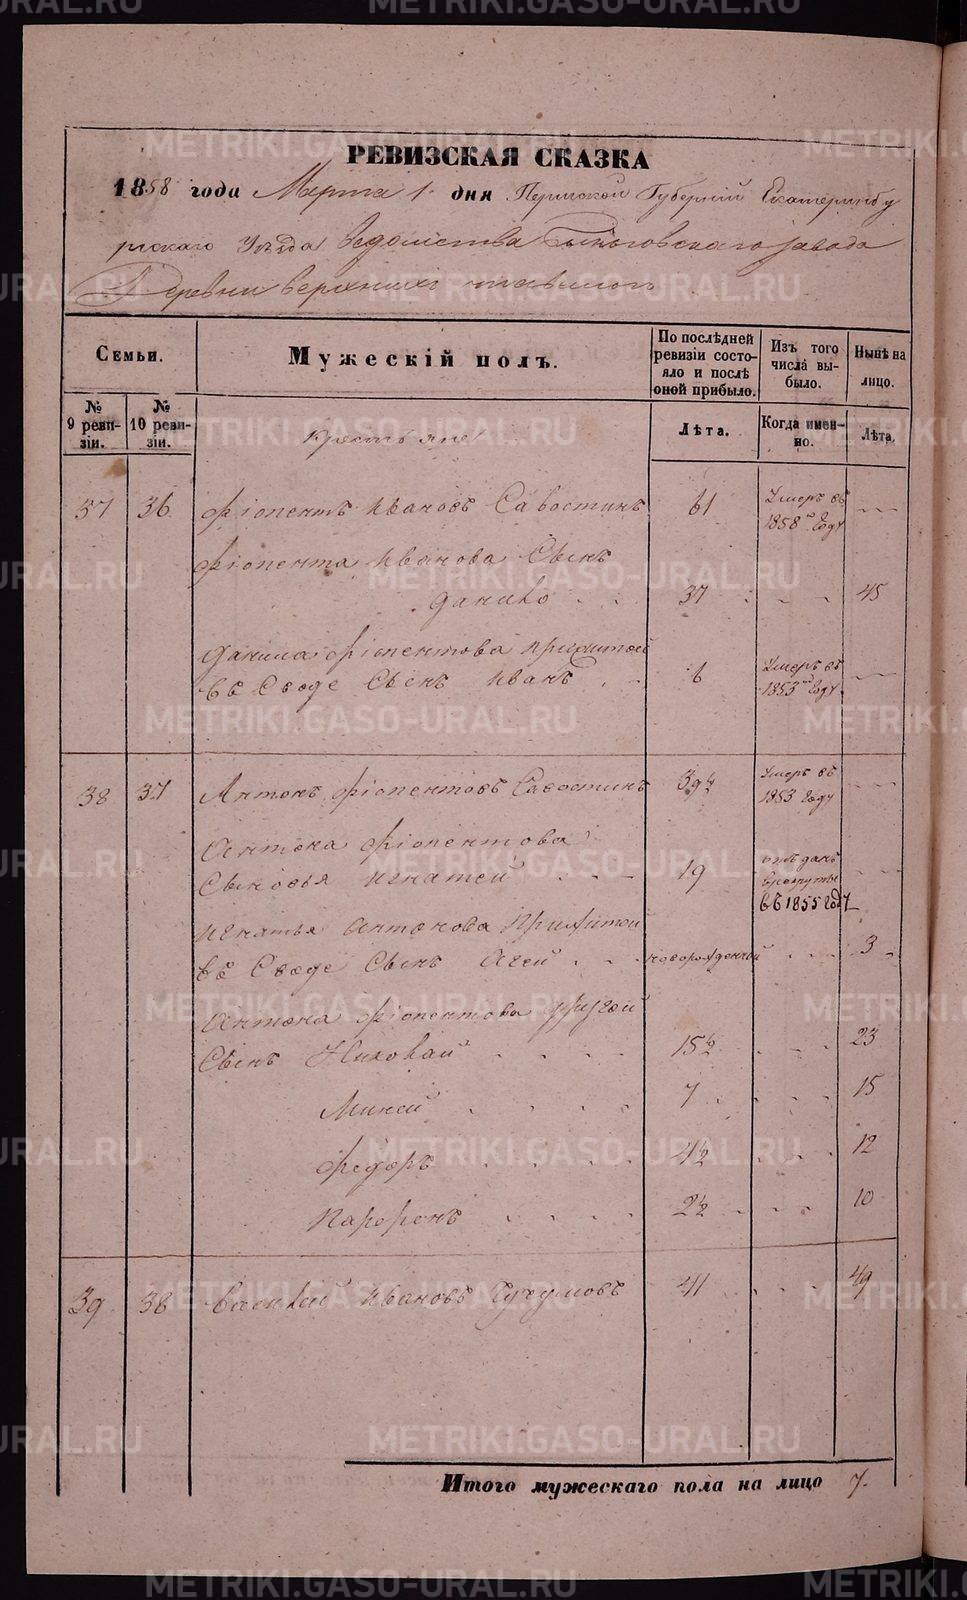 РЕВИЗСКАЯ СКАЗКА
1858 года Марта 1. дня Пермской Губернии Екатеринбу
ргскаго Уѣзда ведомства завода
Деревни верхнихъ
Семьи.
Мужескій полъ.
По послѣдней ревизіи состояло и послѣ оной прибыло.
Изъ того числа выбыло.
Нынѣ на лицо.
№ 9 ревизіи.
№ 10 ревизіи.
Крестьяне
Лѣта.
Когда именно.
Лѣта.
37 36 Фіопентъ Ивановъ Савостинъ 61 Умеръ въ 1858 году
Фіопента Иванова Сынъ
Данило 37 45
Данила Фіопентова прижитой
въ Сводѣ Сынъ Иванъ 6 Умеръ въ 1853 году
38 37 Антонъ Фіопентовъ Савостинъ 39½ Умеръ въ 1853 году
Антона Фіопентова
Сыновья Игнатей 19 отданъ в рекруты въ 1855 году
Игнатья Антонова Прижитой
въ Сводѣ Сынъ новорожденный 3
Антона Фіопентова другой
Сынъ Николай 15½ 23
Миней 7 15
Федоръ 4½ 12
Парфенъ 2½ 10
39 38 Василий Ивановъ Чучумовъ 41 49
Итого мужескаго пола на лицо 7.
METRIKI.GASO-URAL.RU